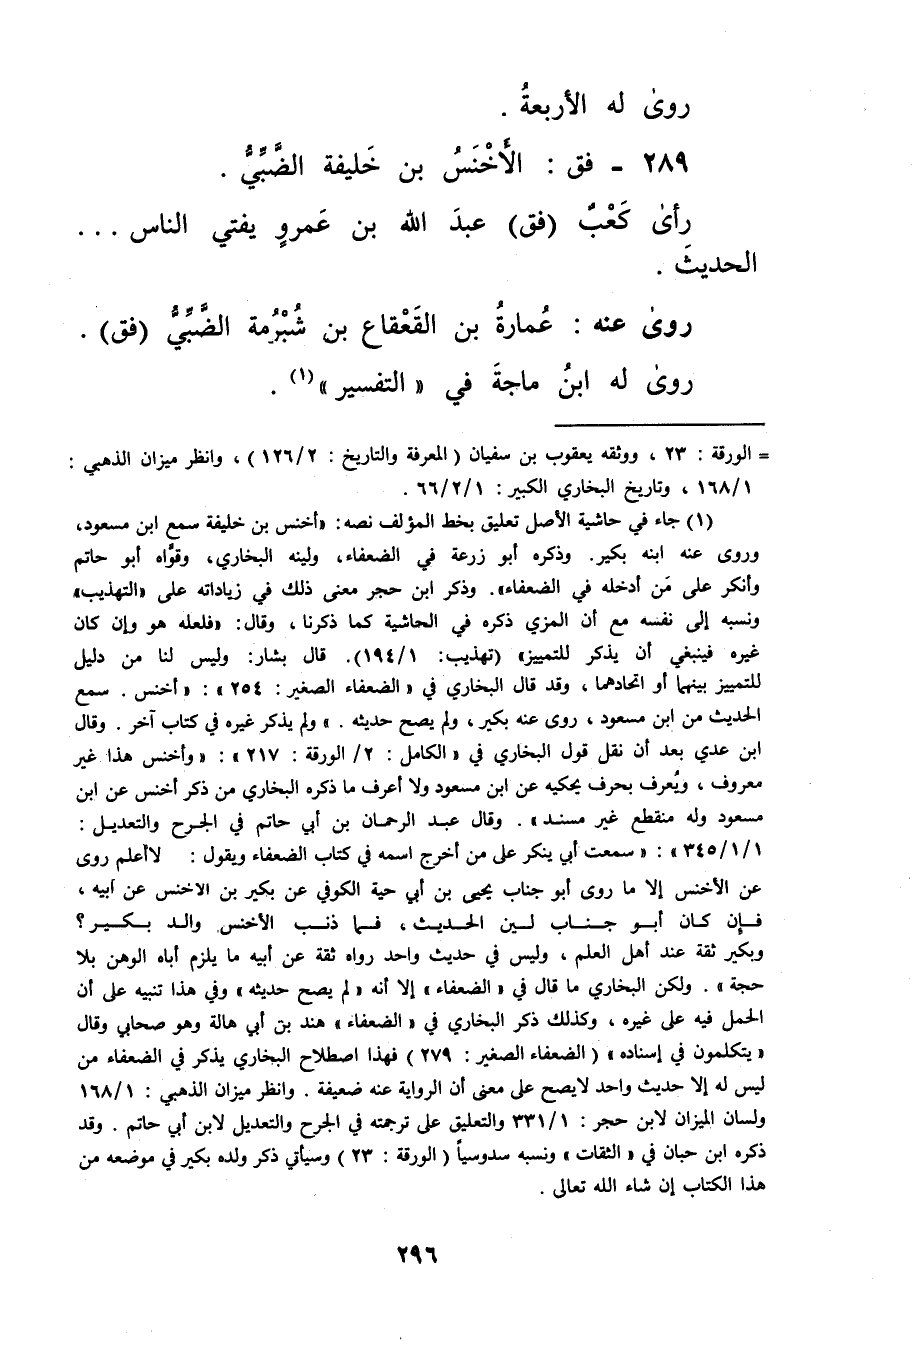 روىٰ له الأربعةُ .
٢٨٩ - فق : الأَخْنَسُ بن خَليفة الضَّبِّيُّ .
رأىٰ كَعْبٌ (فق) عبدَ الله بن عَمروٍ يفتي الناس . . .
الحديثَ .
روىٰ عنه : عُمارةُ بن القَعْقاع بن شُبْرُمة الضَّبِّيُّ (فق) .
روىٰ له ابنُ ماجةَ في « التفسير »(١) .
= الورقة : ٢٣ ، ووثقه يعقوب بن سفيان ( المعرفة والتاريخ : ١٢٦/٢ ) ، وانظر ميزان الذهبي :
١٦٨/١ ، وتاريخ البخاري الكبير : ٦٦/٢/١ .
(١) جاء في حاشية الأصل تعليق بخط المؤلف نصه: «أخنس بن خليفة سمع ابن مسعود،
وروى عنه ابنه بكير. وذكره أبو زرعة في الضعفاء، ولينه البخاري، وقوَّاه أبو حاتم
وأنكر على مَن أدخله في الضعفاء». وذكر ابن حجر معنى ذلك في زياداته على «التهذيب»
ونسبه إلى نفسه مع أن المزي ذكره في الحاشية كما ذكرنا ، وقال: «فلعله هو وإن كان
غيره فينبغي أن يذكر للتمييز» (تهذيب: ١٩٤/١). قال بشار: وليس لنا من دليل
للتمييز بينهما أو اتحادهما ، وقد قال البخاري في « الضعفاء الصغير : ٢٥٤ » : « أخنس . سمع
الحديث من ابن مسعود ، روى عنه بكير ، ولم يصح حديثه . » ولم يذكر غيره في كتاب آخر . وقال
ابن عدي بعد أن نقل قول البخاري في « الكامل : ٢/ الورقة : ٢١٧ » : « وأخنس هذا غير
معروف ، ويُعرف بحرف يحكيه عن ابن مسعود ولا أعرف ما ذكره البخاري من ذكر أخنس عن ابن
مسعود وله منقطع غير مسند » . وقال عبد الرحمان بن أبي حاتم في الجرح والتعديل :
٣٤٥/١/١ » : « سمعت أبي ينكر على من أخرج اسمه في كتاب الضعفاء ويقول : لاأعلم روى
عن الأخنس إلا ما روى أبو جناب يحيى بن أبي حية الكوفي عن بكير بن الاخنس عن أبيه ،
فإن كان أبو جناب لين الحديث ، فما ذنب الأخنس والد بكير ؟
وبكير ثقة عند أهل العلم ، وليس في حديث واحد رواه ثقة عن أبيه ما يلزم أباه الوهن بلا
حجة » . ولكن البخاري ما قال في « الضعفاء » إلا أنه « لم يصح حديثه » وفي هذا تنبيه على أن
الحمل فيه على غيره ، وكذلك ذكر البخاري في « الضعفاء » هند بن أبي هالة وهو صحابي وقال
« يتكلمون في إسناده » ( الضعفاء الصغير : ٢٧٩ ) فهذا اصطلاح البخاري يذكر في الضعفاء من
ليس له إلا حديث واحد لايصح على معنى أن الرواية عنه ضعيفة . وانظر ميزان الذهبي : ١٦٨/١
ولسان الميزان لابن حجر : ٣٣١/١ والتعليق على ترجمته في الجرح والتعديل لابن أبي حاتم . وقد
ذكره ابن حبان في « الثقات » ونسبه سدوسياً ( الورقة : ٢٣ ) وسيأتي ذكر ولده بكير في موضعه من
هذا الكتاب إن شاء الله تعالى .
٢٩٦